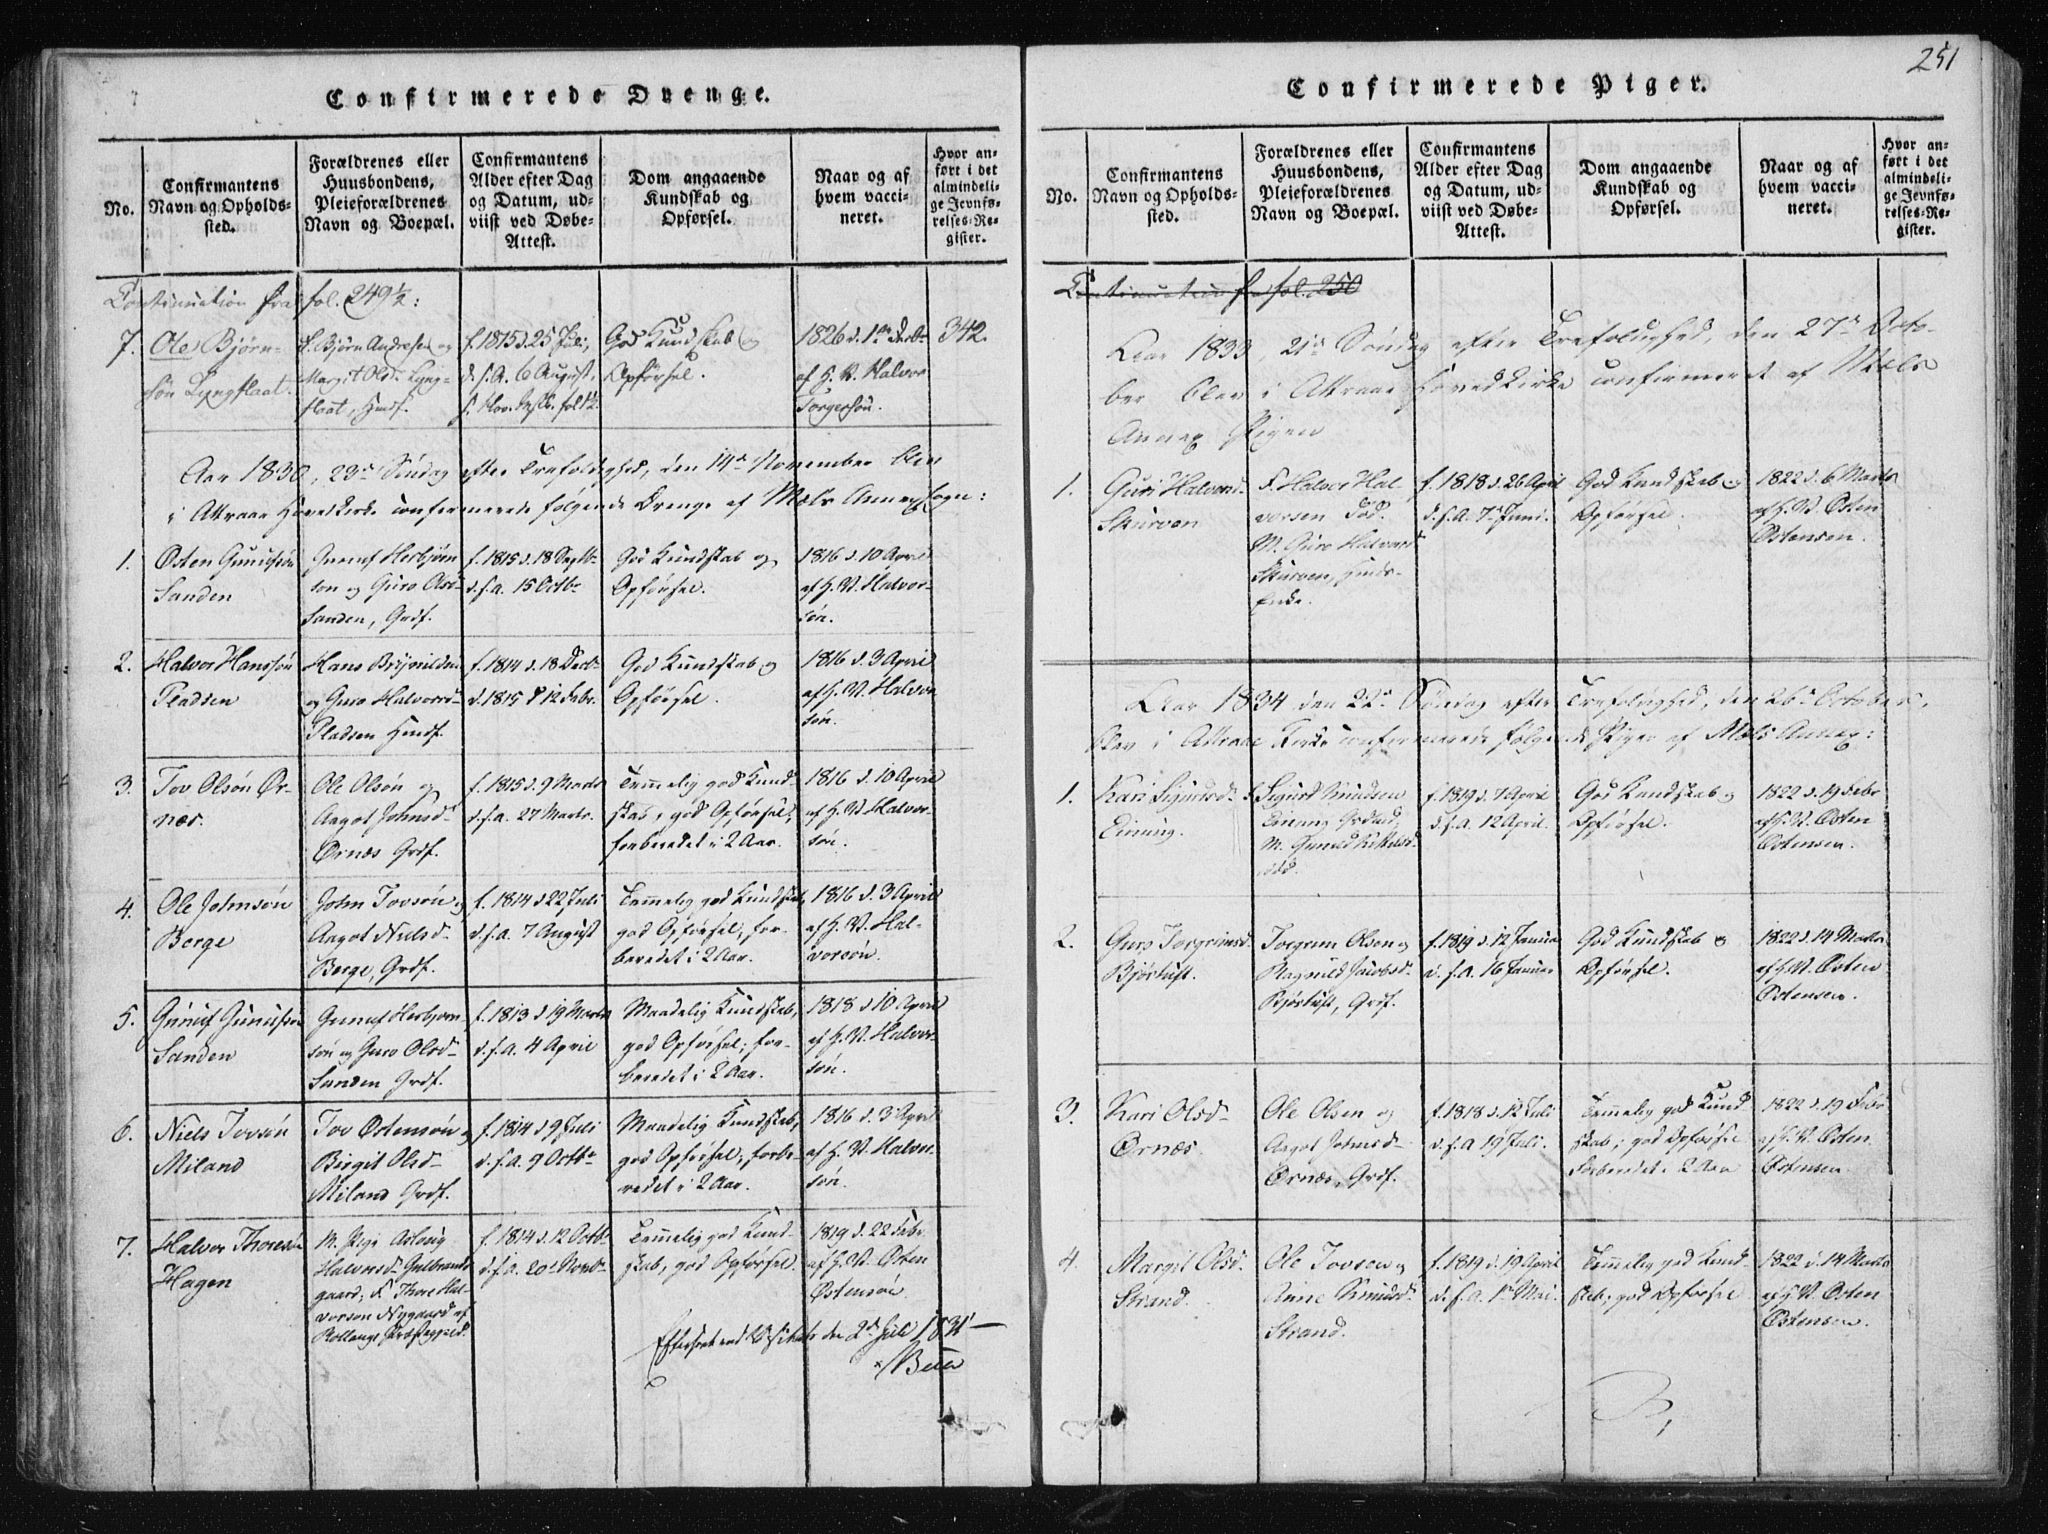 251
Confirmerede Drenge.
No.
Confirmantens
Navn og Opholds-
sted.
Forældrenes eller
Huusbondens,
Pleieforældrenes
Navn og Boepæl.
Confirmantens
Alder efter Dag
og Datum, ud-
viist ved Døbe-
Attest.
Dom angaaende
Kundskab og
Opførsel.
Naar og af
hvem vacci-
neret.
Hvor an-
ført i det
almindeli-
ge Jevnfø-
relses-Re-
gister.
Continuation fra fol. 249½:
7.
Ole Bjørn-
søn
Bjørn Andresen og
Margit Olsd.
Hmdf.
f. 1815 d. 25 Juli,
d. s. A. 6 August,
God Kundskab og
Opførsel.
1826 d. 1ste
af H. V. Halvor
Torgersøn.
342.
Aar 1830, 23de Søndag efter Trefoldighed, den 14de November blev
i Attraae Hovedkirke confirmerede følgende Drenge af Mæls Annexsogn:
1.
Østen Gunulfsøn
Sanden
Gunulf Herbjørn-
søn og Guro Olsd-
Sanden, Grdf.
f. 1815 d. 18 Septbr
d. s. A. 15 Octbr
God Kundskab og
Opførsel.
1816 d. 10 April
af H. V. Halvor-
søn.
2.
Halvor Hanssøn
Pladsen
Hans
og Guro Halvorsd-
Pladsen Hmdf.
f. 1814 d. 18 Decbr
d. 1815 d 12 Febr.
God Kundskab og
Opførsel.
1816 d. 3 April
af H. V. Halvor
søn.
3.
Tov Olsøn Ør-
næs.
Ole Olsøn og
Aagot Johnsd-
Ørnæs Grdf.
f. 1815 d. 9 Marts
d. s. A. 27 Marts.
Temmelig god Kund
skab, god Opførsel,
forberedet i 2 Aar.
1816 d. 10 April
af H. V. Halvor-
søn.
4.
Ole Johnsøn
Berge
John Tovsøn og
Aagot Nielsd-
Berge, Grdf.
f. 1814 d 22 Juli
d. s. A. 7 August
Temmelig god Kundskab,
god Opførsel, for-
beredet i 2 Aar.
1816 d. 3 April
af H. V. Hal-
vorsøn.
5.
Gunulf Gunulfsøn
Sanden
Gunulf Herbjørn-
søn og Guro Olsd-
Sanden Grdf.
f. 1813 d 19 Marts
d. s. A. 4 April
Maadelig Kundskab,
god Opførsel; for-
beredet i 2 Aar.
1818 d 10 April
af H. V. Halvor-
søn.
6.
Niels Tovsøn
Miland
Tov Østensøn og
Birgit Olsd-
Miland Grdf.
f. 1814 d 9 Juli
d. s. A. 9 Octbr
Maadelig Kundskab,
god Opførsel, forbe-
redet i 2 Aar.
1816 d. 3 April
af H. V. Halvor-
søn.
7.
Halvor Thoresøn
Hagen
M. Pige Aslaug
Halvorsd Gulbrands
gaard; F. Thore Hal-
vorsøn Nygaard af
Rollangs Præstegield.
f. 1814 d. 12 Octbr
d. s. A. 20 Novbr
Temmelig god Kund-
skab, god Opførsel.
1819 d. 22 Febr
af H. V. Østen
Østensøn
Efterseet ved Visitats den 2d Juli 1831 —
Confirmerede Piger.
No.
Confirmantens
Navn og Opholds-
sted.
Forældrenes eller
Huusbondens,
Pleieforældrenes
Navn og Boepæl.
Confirmantens
Alder efter Dag
og Datum, ud-
viist ved Døbe-
Attest.
Dom angaaende
Kundskab og
Opførsel.
Naar og af
hvem vacci-
neret.
Hvor an-
ført i det
almindeli-
ge Jevnfø-
relses-Re-
gister.
Continuation fra fol. 250
Aar 1833, 21de Søndag efter Trefoldighed, den 27de Octo-
ber blev i Attraae Hovedkirke confirmeret af Mæls
Annex Pigen
1.
Guri Halvorsd.
Skurven
F. Halvor Hal
vorsen død.
M. Guro Halvorsd
Skurven, Hmds-
Enke.
f. 1818 d. 26 April
d. s. A. 7de Juni.
God Kundskab og
Opførsel.
1822 d. 6 Marts
af H. V. Østen
Østensen.
Aar 1834 den 22de Søndag efter Trefoldighed, den 26de October,
blev i Attraae Kirke confirmerede følgende Piger af Mæls Annex:
1.
Kari Sigurdsd.
F. Sigurd Knudsen
M. Gunild Kittelsd.
død.
f. 1819 d. 7 April
d. s. A. 12 April.
God Kundskab og
Opførsel.
1822 d. 19 Febr
af H. V. Østen
Østensen.
2.
Guro Torgrimsd.
Bjørtuft.
Torgrim Olsen og
Ragnild Jacobsd.
Bjørtuft, Grdf.
f. 1819 d. 12 Januar
d. s. A. 16 Januar
God Kundskab og
Opførsel.
1822 d. 14 Marts
af H. V. Østen
Østensen.
3.
Kari Olsd-
Ørnæs.
Ole Olsen og
Aagot Johnsd-
Ørnæs, Grdf.
f. 1818 d. 12 Juli
d. s. A 19 Juli.
Temmelig god Kund
skab; god Opførsel
Forberedet i 2 Aar
1822 d. 19 Febr
af H. V. Østen
Østensen.
4.
Margit Olsd.
Strand.
Ole Tovsen og
Anne Knudsd.
Strand.
f. 1819 d. 19 April
d. s. A. 1ste Mai.
Temmelig god Kund-
skab; god Opførsel
1822 d. 14 Marts
af H. V. Østen
Østensen.